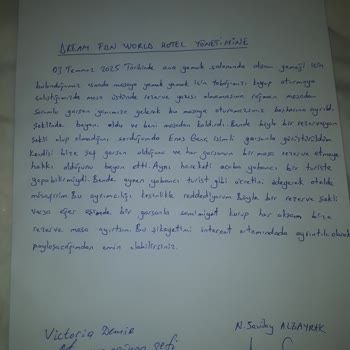 DREAM FUN WORLD HOTEL YÖNETİMİNE
03 Temmuz 2025 Tarihinde ana yemek salonunda akşam yemeği için
bulunduğumuz sırada masaya yemek yemek için tabağımızı koyup oturmaya
çalıştığımızda masa üstünde rezerve yazısı olmamasına rağmen masadan
Sorumlu garson yanımıza gelerek bu masaya oturamazsınız başkasına ayrıldı,
şeklinde beyanı oldu ve bizi masadan kaldırdı. Bende böyle bir rezervasyon
şekli olup olmadığını sorduğumda Enes Genç isimli garsonla görüştüğümde
Kendisi bize şef garson olduğunu ve her garsonun bir masa rezerve etmeye
hakkı olduğunu beyan etti. Aynı hareketi acaba yabancı bir turiste
yapabilirmiydi. Bende aynen yabancı turist gibi ücretini ödeyerek otelde
misafirim Bu ayrımcılığı kesinlikle reddediyorum Böyle bir rezerve şekli
varsa eğer bir garsonla samimiyet kurup her akşam bize
rezerve masa ayırtsın. Bu şikayetimi internet ortamındada ayrıntılı olarak
paylaşacağımdan emin olabilirsiniz.
Victoria
N. Savaş ALBAYRAK
şefi